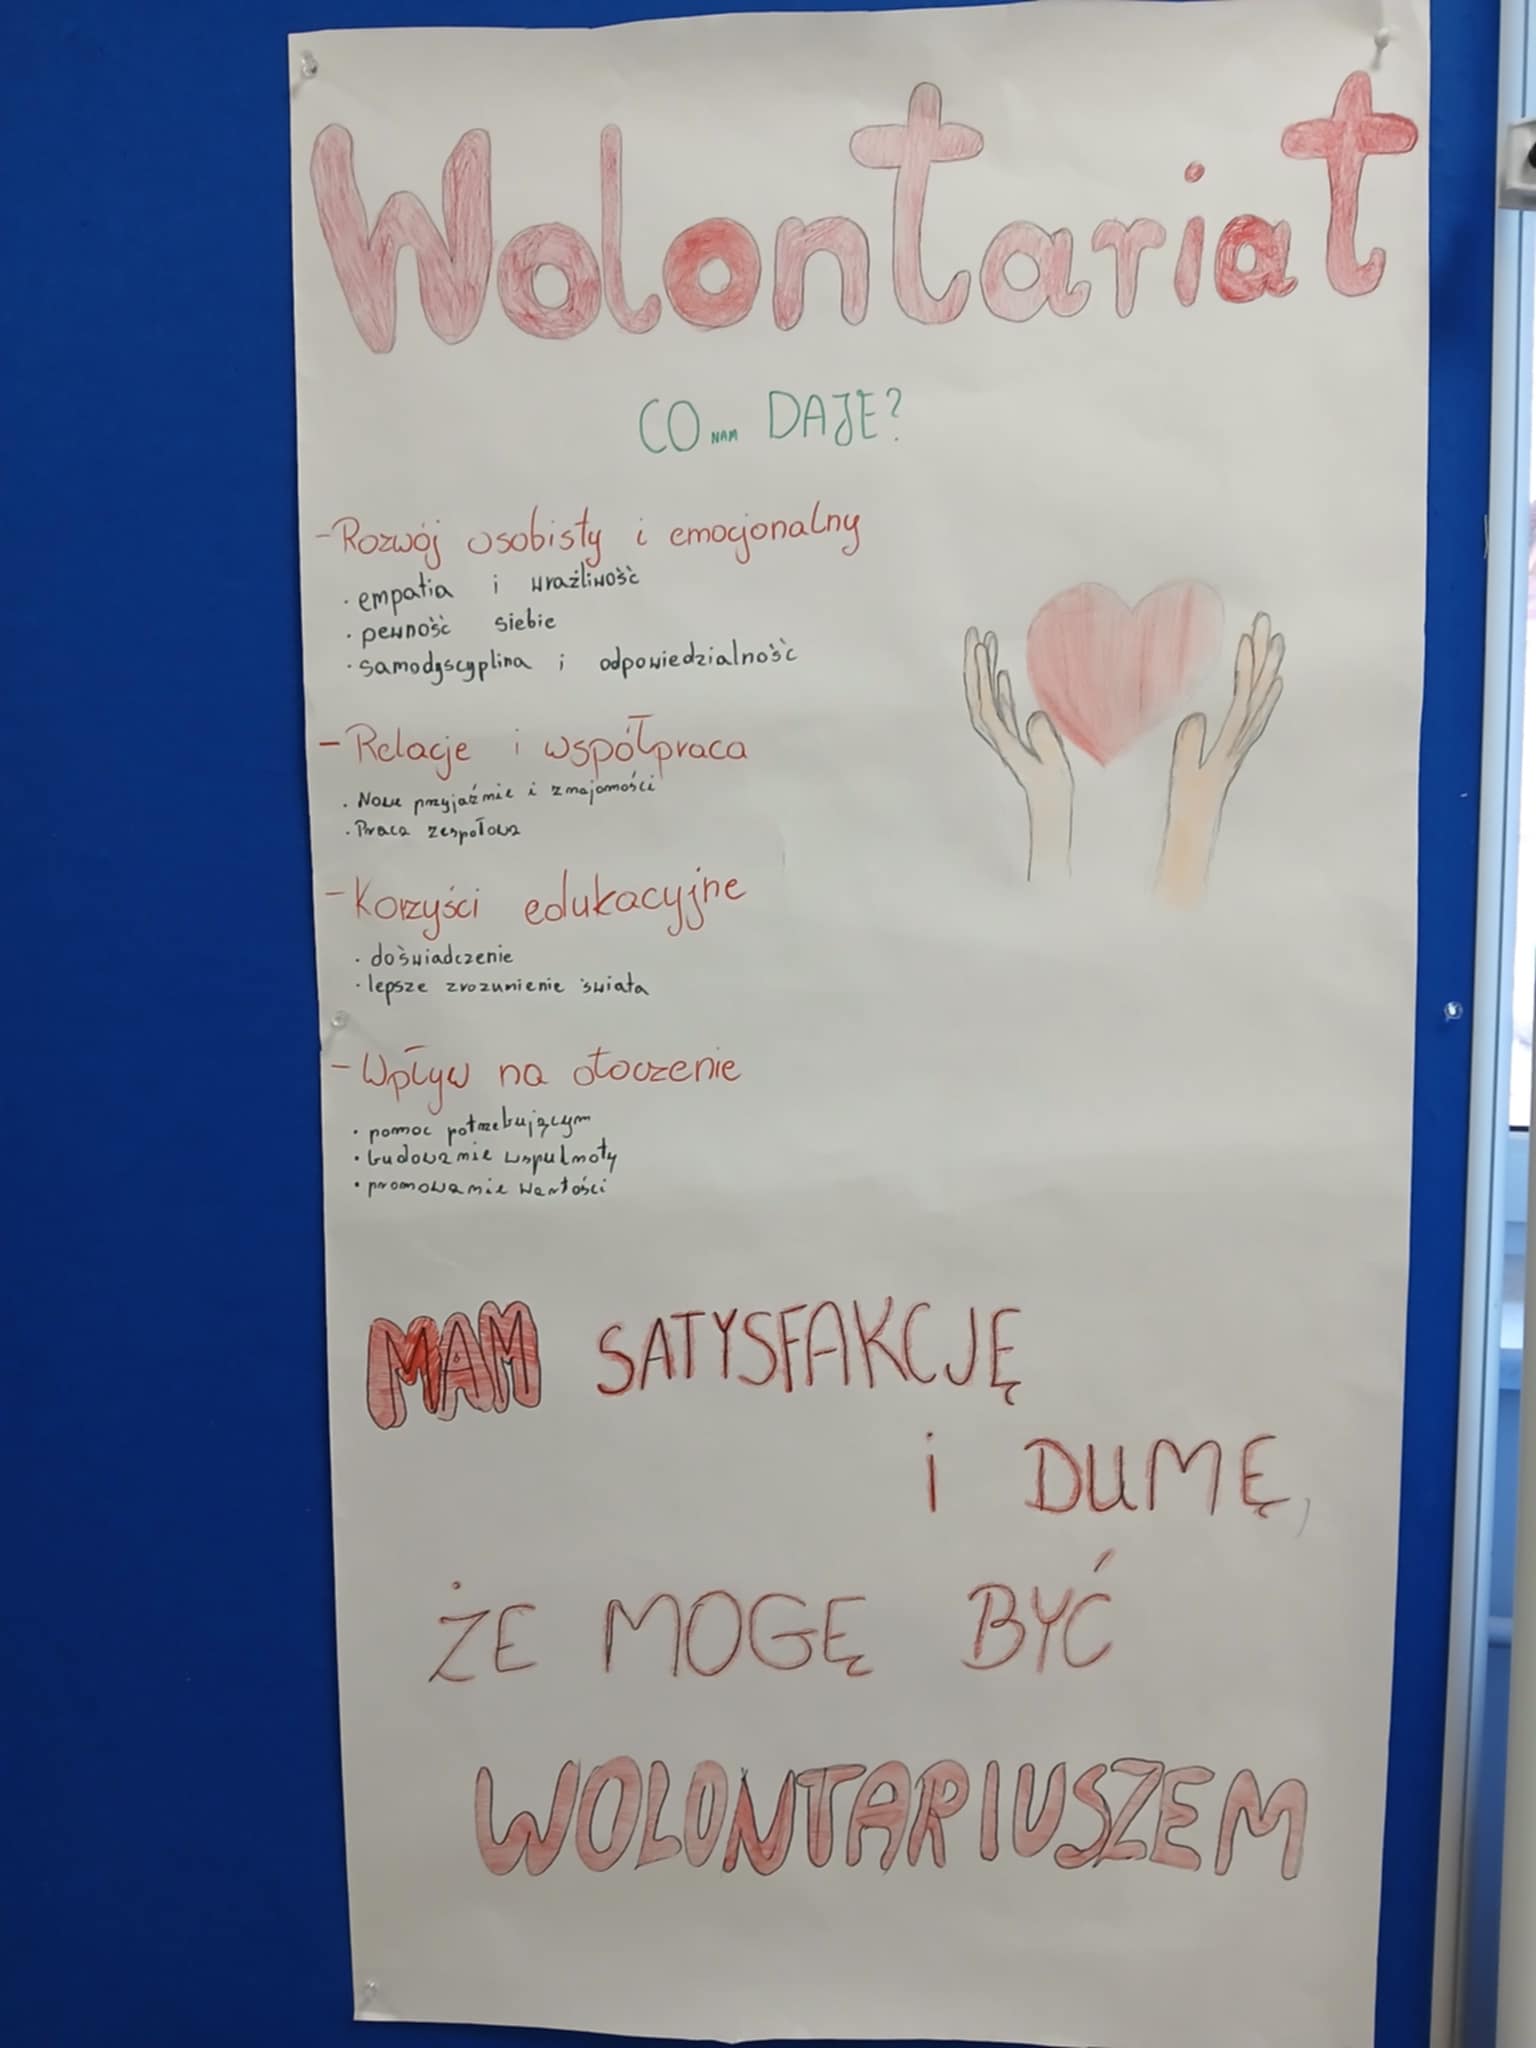 Wolontariat
CO NAM DAJE?
- Rozwój osobisty i emocjonalny
· empatia i wrażliwość
· pewność siebie
· samodyscyplina i odpowiedzialność
- Relacje i współpraca
· Nowe przyjaźnie i znajomości
· Praca zespołowa
- Korzyści edukacyjne
· doświadczenie
· lepsze zrozumienie świata
- Wpływ na otoczenie
· pomoc potrzebującym
· budowanie wspulnoty
· promowanie wartości
MAM SATYSFAKCJĘ
i DUMĘ,
ŻE MOGĘ BYĆ
WOLONTARIUSZEM